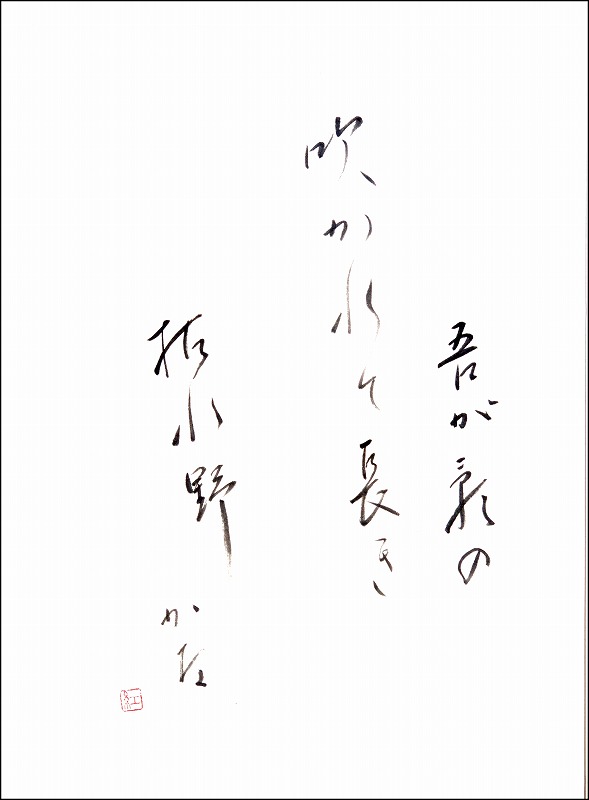 吾が影の
吹かれて長き
枯れ野
かな